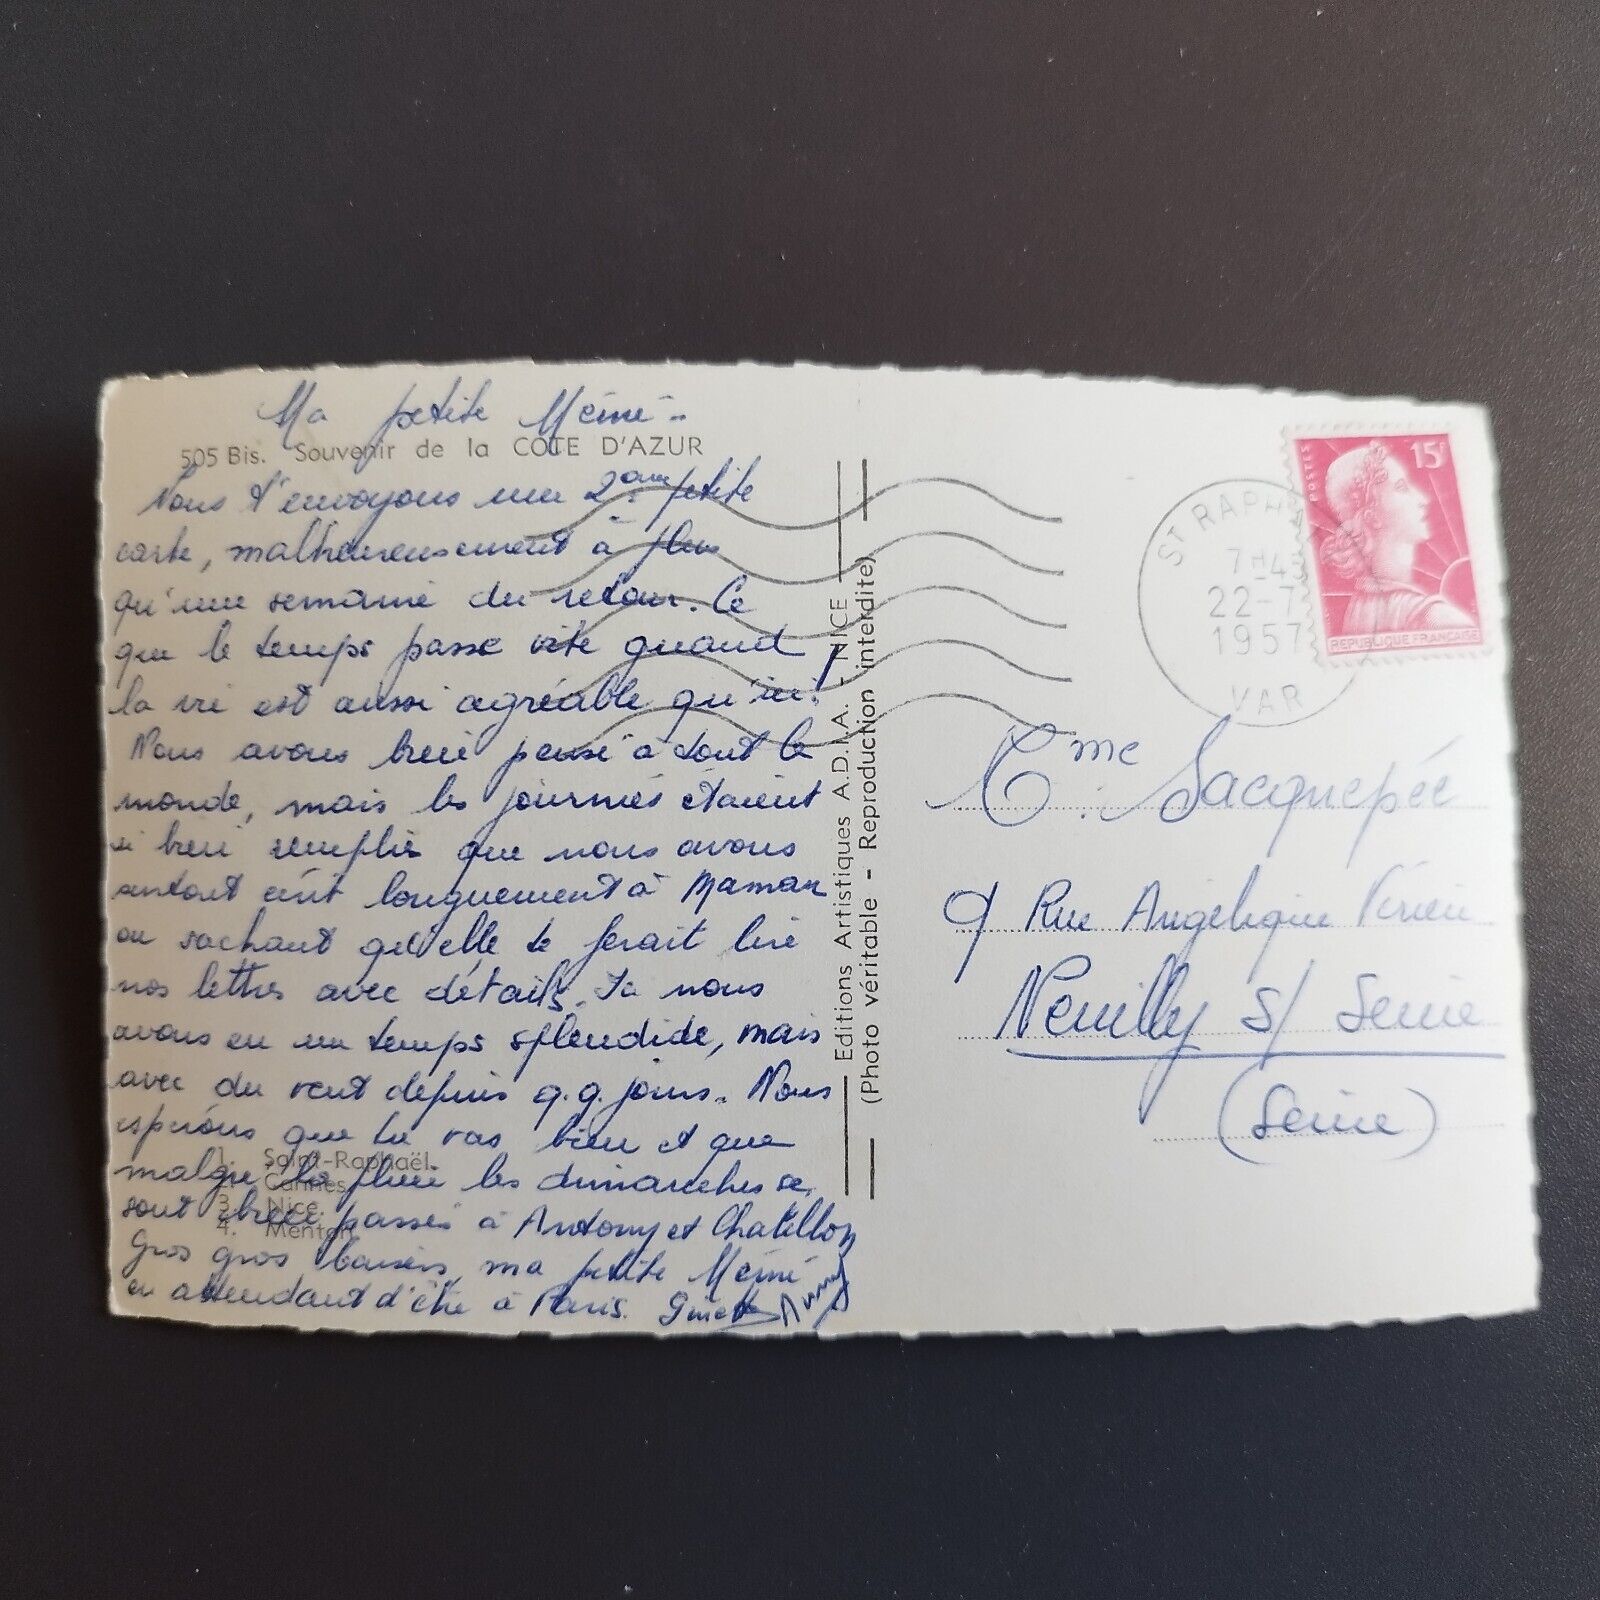 Ma petite Mémé -
505 Bis. Souvenir de la COTE D'AZUR
Nous t'envoyons une 2ème petite
carte, malheureusement à plus
qu'une semaine du retour. Ce
que le temps passe vite quand
la vie est aussi agréable qu'ici!
Nous avons bien pensé à tout le
monde, mais les journées étaient
si bien remplies que nous avons
surtout écrit longuement à Maman
en sachant qu'elle te ferait lire
nos lettres avec détails. Ici nous
avons eu un temps splendide, mais
avec du vent depuis q.q. jours. Nous
espérons que tu vas bien et que
malgré la pluie les dimanches se
sont bien passés à Antony et Chatillon
Gros gros baisers, ma petite Mémé
en attendant d'être à Paris.
1. Saint-Raphaël.
2. Cannes.
3. Nice.
4. Menton.
Editions Artistiques A.D.I.A. - NICE
(Photo véritable - Reproduction interdite)
15F
POSTES
REPUBLIQUE FRANÇAISE
ST RAPH
7H4
22-7
1957
VAR
Mme Sacquepée
9 Rue Angélique Vérien
Neuilly s/ Seine
(Seine)